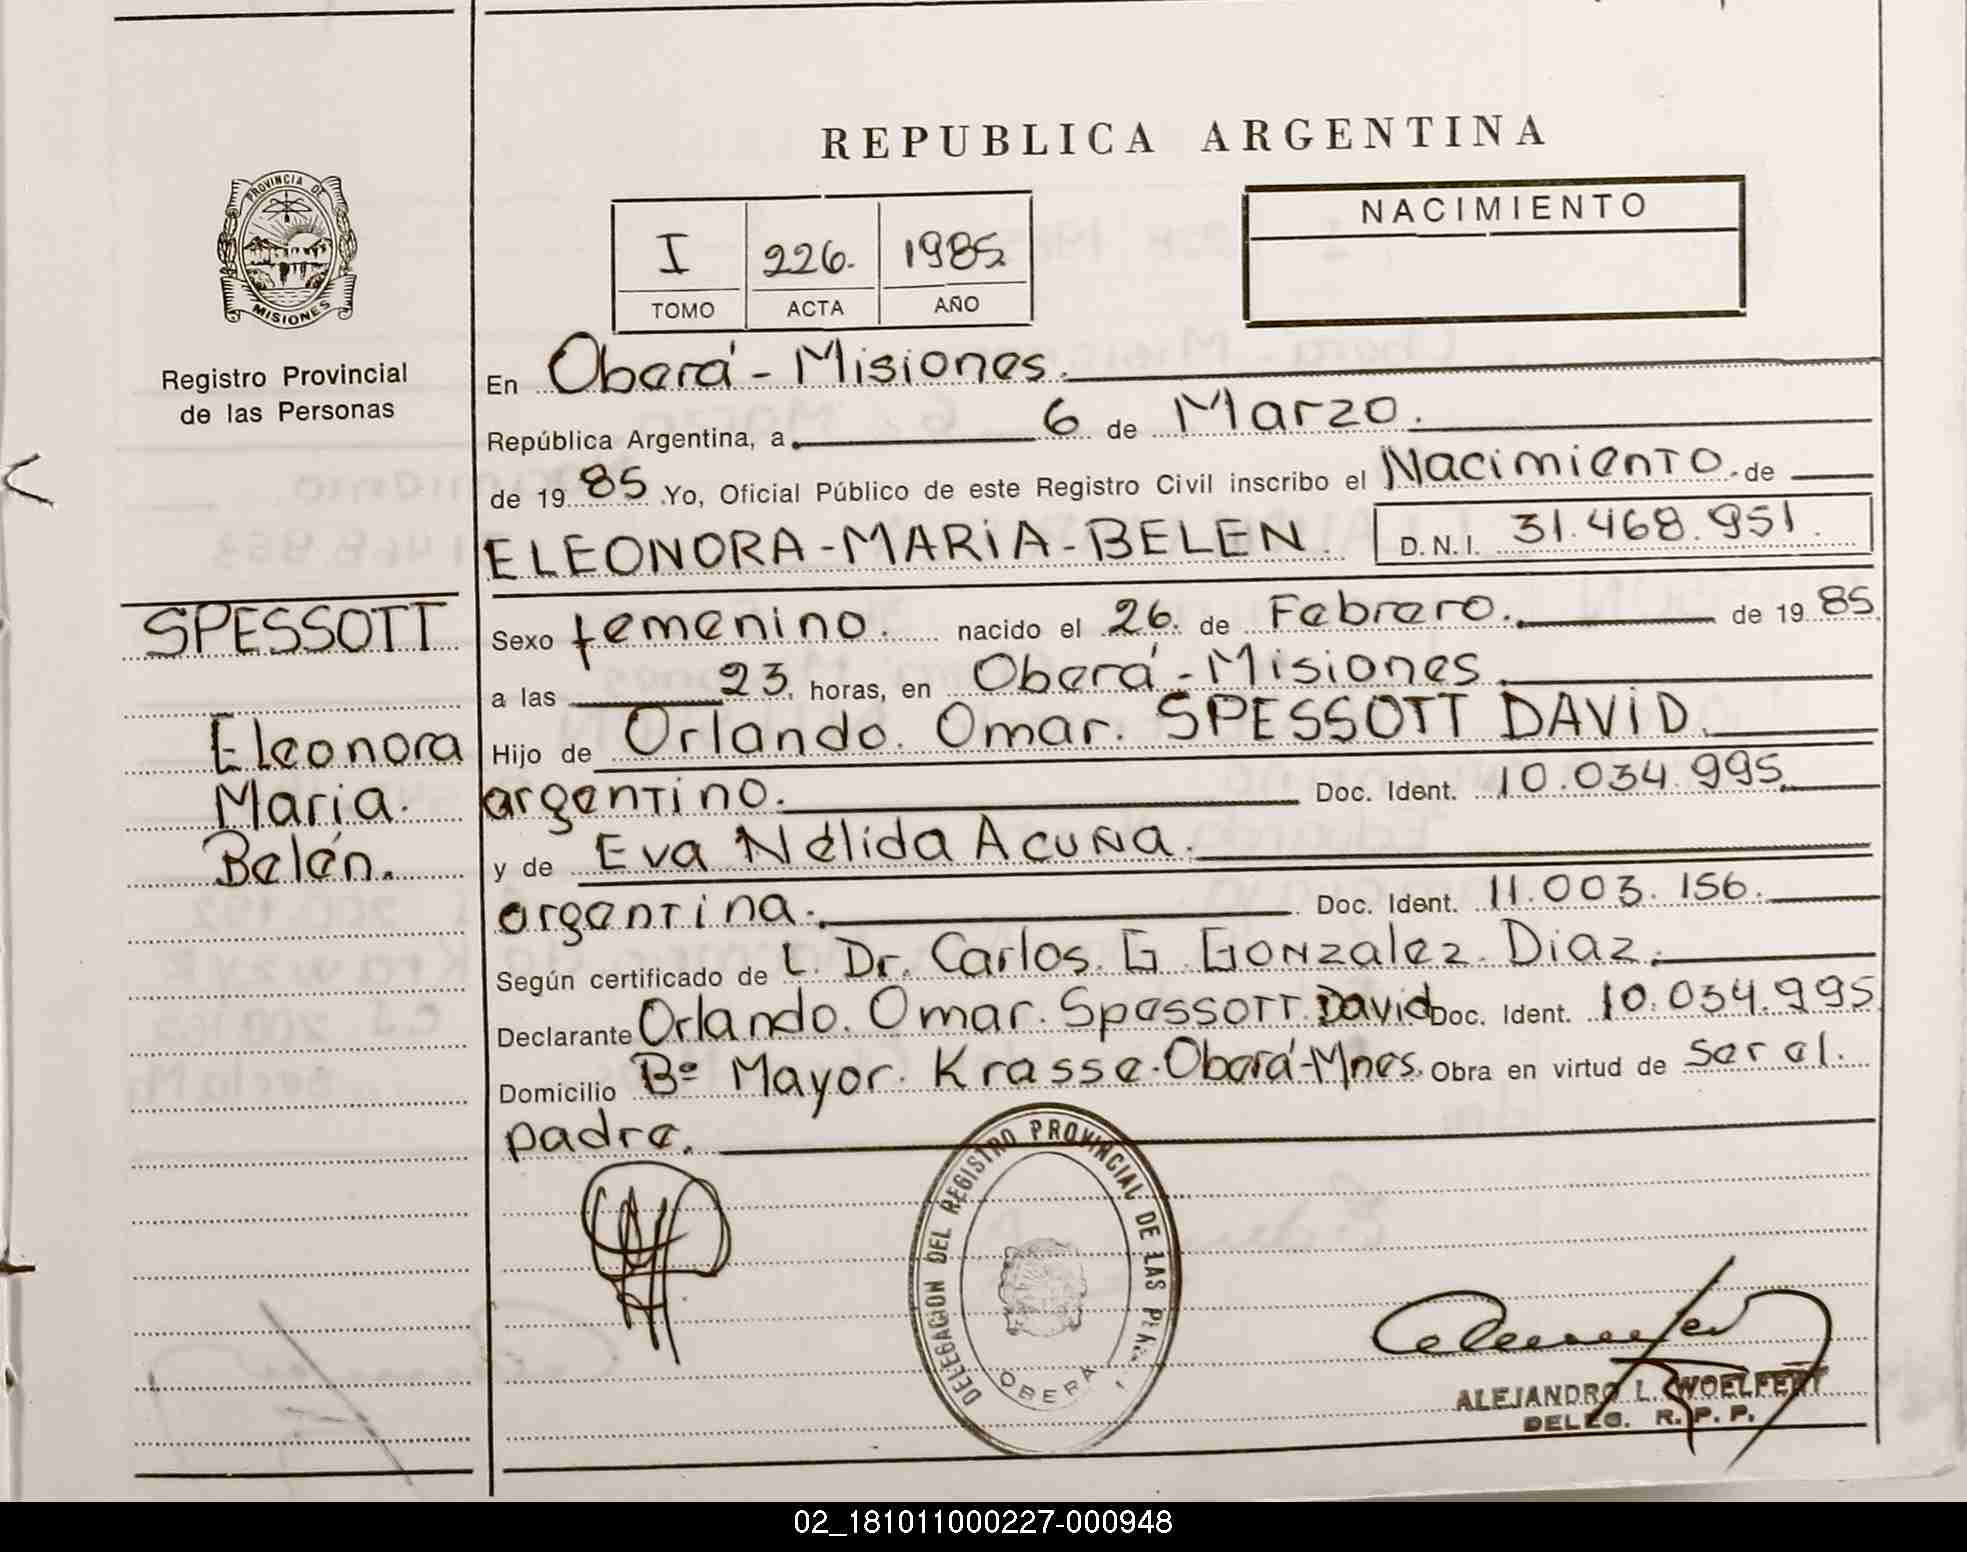 REPUBLICA ARGENTINA
PROVINCIA DE
MISIONES
Registro Provincial
de las Personas
I 226. 1985
TOMO ACTA AÑO
NACIMIENTO
En Oberá - Misiones.
República Argentina, a 6 de Marzo.
de 19 85 Yo, Oficial Público de este Registro Civil inscribo el Nacimiento. de
ELEONORA - MARIA - BELEN. D.N.I. 31.468.951.
SPESSOTT
Eleonora
Maria.
Belén.
Sexo femenino. nacido el 26. de Febrero. de 19 85
a las 23. horas, en Oberá - Misiones.
Hijo de Orlando. Omar. SPESSOTT DAVID.
argentino. Doc. Ident. 10.034.995.
y de Eva Nélida Acuña.
argentina. Doc. Ident. 11.003.156.
Según certificado de L. Dr. Carlos. G. Gonzalez. Diaz.
Declarante Orlando. Omar. Spessott. David Doc. Ident. 10.034.995
Domicilio Bº Mayor. Krasse. Oberá-Mnes. Obra en virtud de ser el.
padre.
DELEGACION DEL REGISTRO PROVINCIAL DE LAS
OBERA
ALEJANDRO L. WOELFERT
DELEG. R. P. P.
02_181011000227-000948